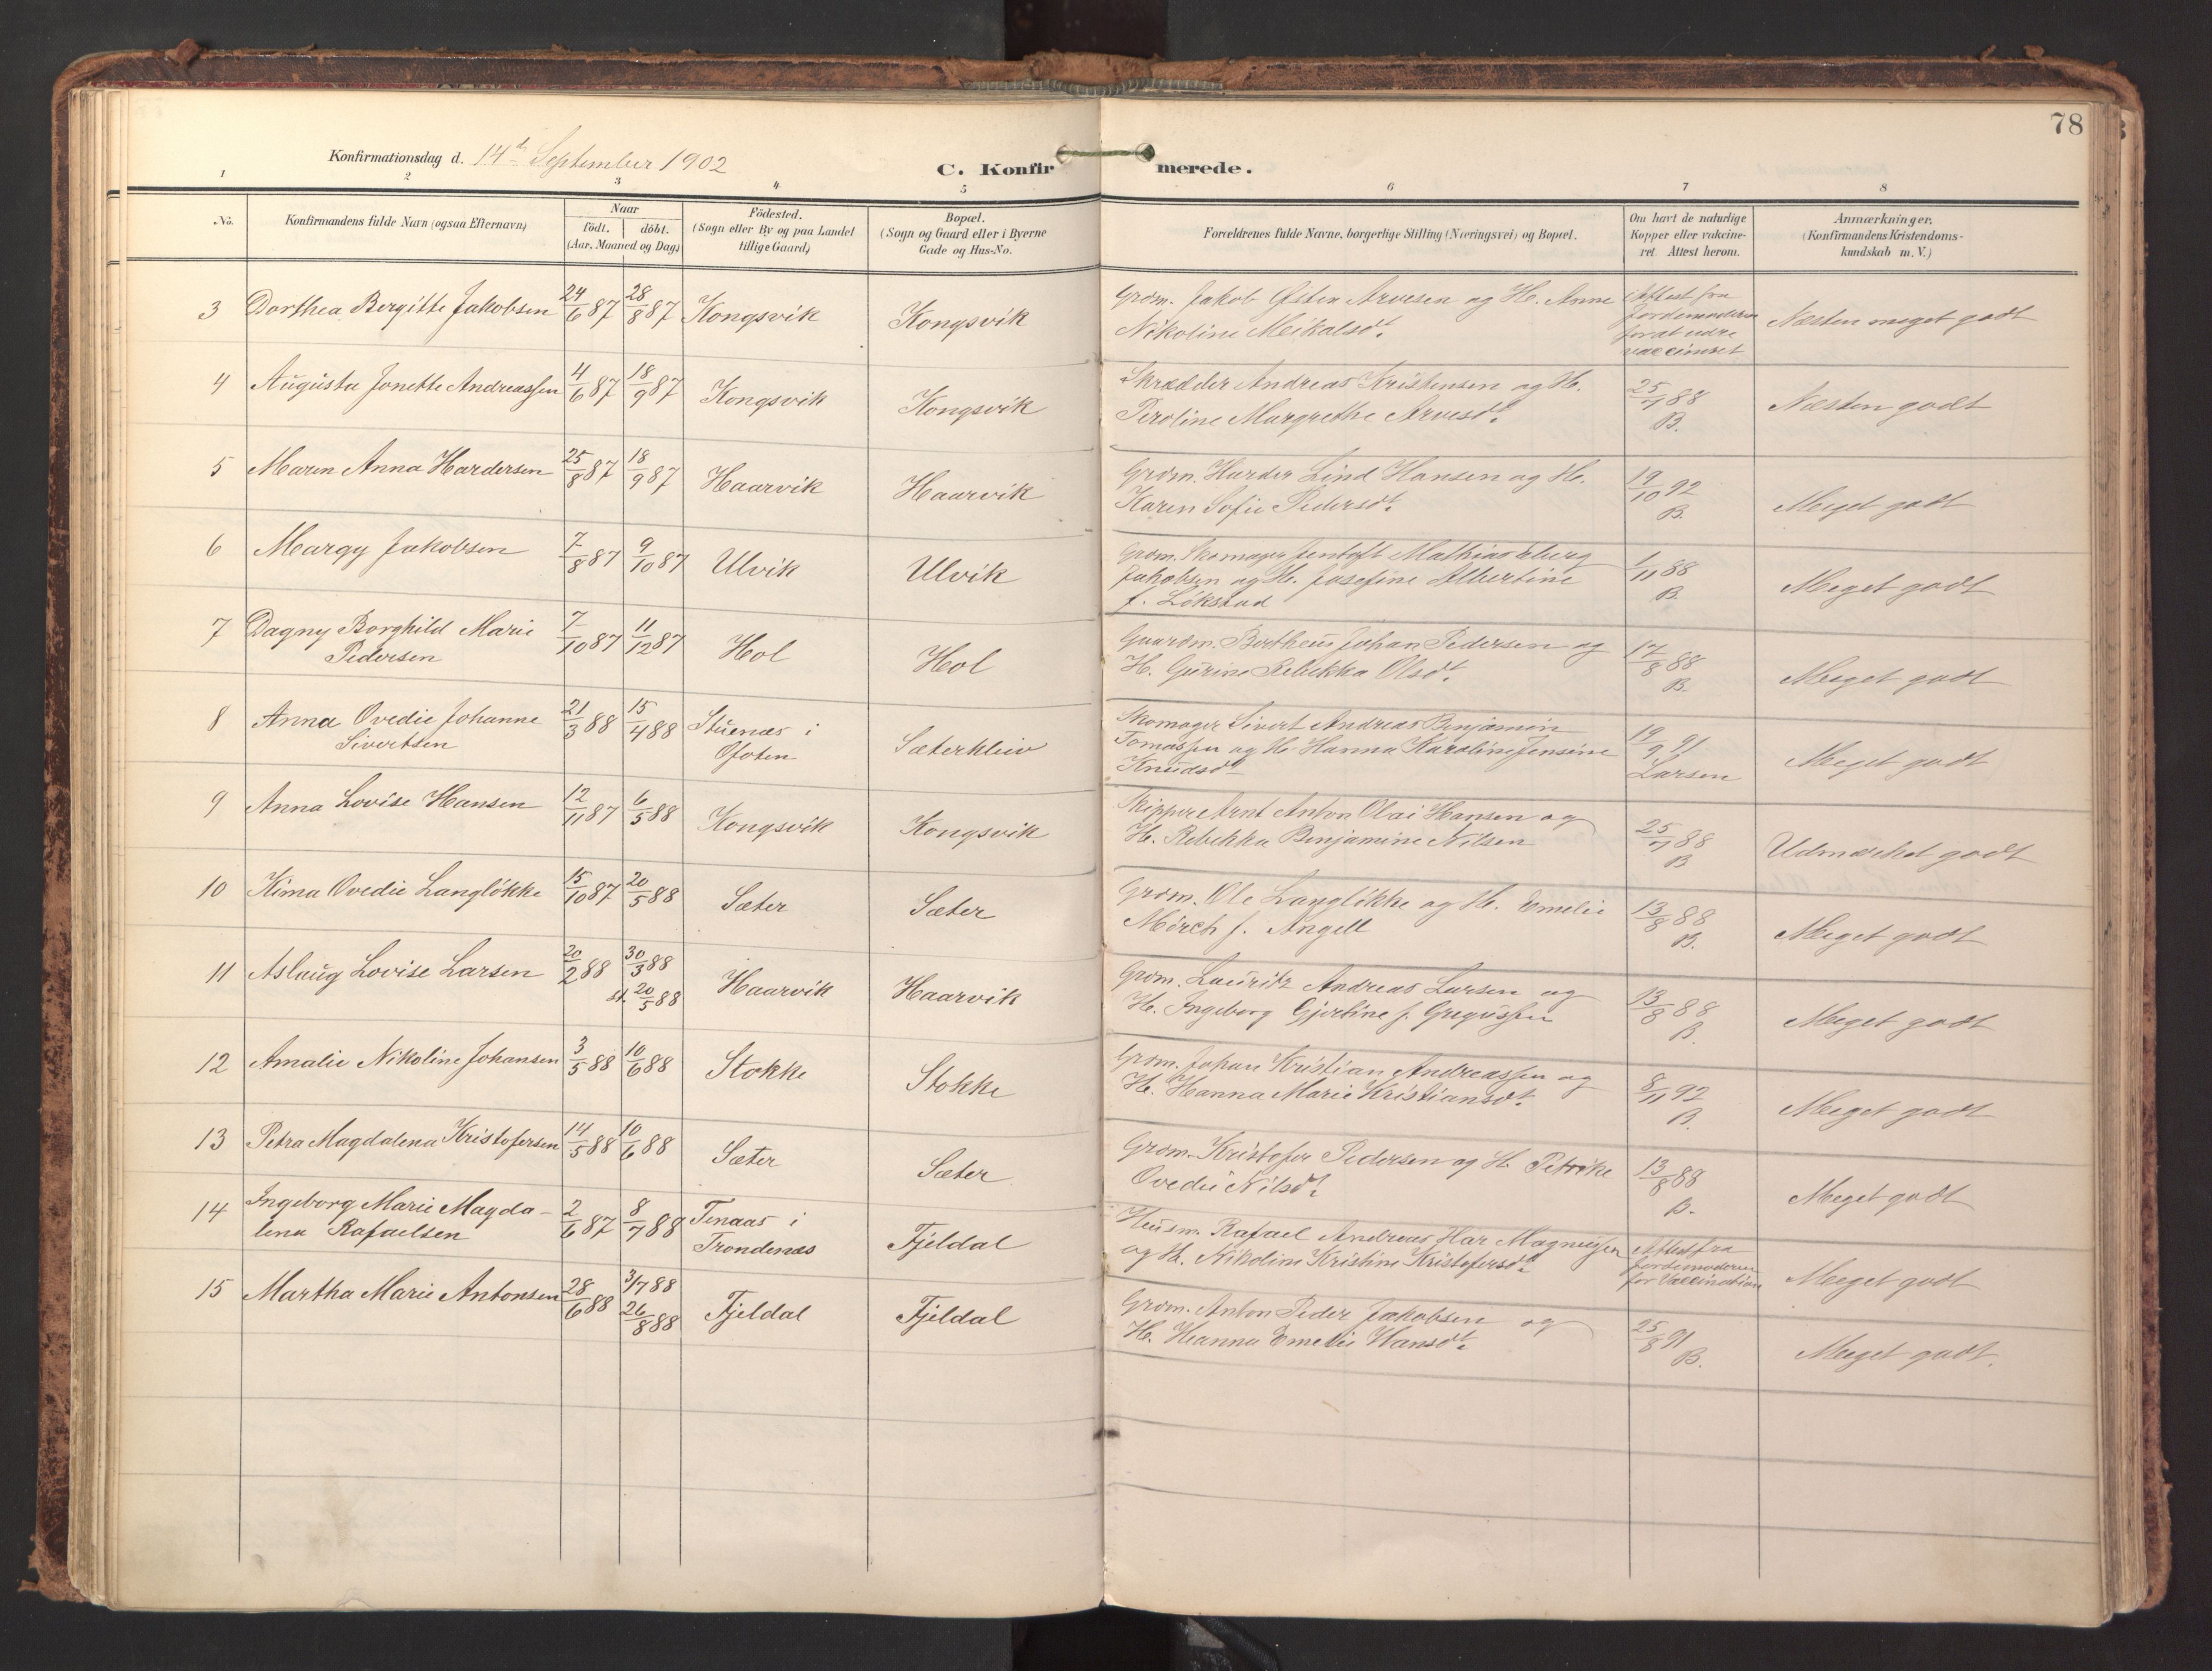 78
Konfirmationsdag d. 14de September 1902
C. Konfirmerede.
1 2 3 4 5 6 7 8
No.
Konfirmandens fulde Navn (ogsaa Efternavn)
Naar
födt. döbt.
(Aar, Maaned og Dag)
Födested.
(Sogn eller By og paa Landet
tillige Gaard)
Bopæl.
(Sogn og Gaard eller i Byerne
Gade og Hus-No.
Forældrenes fulde Navne, borgerlige Stilling (Næringsvei) og Bopæl.
Om havt de naturlige
Kopper eller vakcine-
ret Attest herom.
Anmærkninger.
(Konfirmandens Kristendoms-
kundskab m. V.)
3 Dorthea Bergitte Jakobsen 24/6 87 28/8 87 Kongsvik Kongsvik
Grdm. Jakob Østen Arvesen og H. Anne
Nikoline Meikalsdt.
Attest fra
Jordemoderen
for at være
vaccineret
Næsten meget godt
4 Augusta Jonette Andreassen 4/6 87 18/9 87 Kongsvik Kongsvik
Skrædder Andreas Kristensen og H.
Peroline Margrethe Arvesdt.
25/7 88
B.
Næsten godt
5 Maren Anna Hardersen 25/8 87 18/9 87 Haarvik Haarvik
Grdm. Harder Lind Hansen og H.
Karen Sofie Pedersdt.
19/10 92
B.
Meget godt
6 Margy Jakobsen 7/8 87 9/10 87 Ulvik Ulvik
Grdm. Skomager Jentoft Mathias
Jakobsen og H. Josefine Albertine
f. Lökstad
1/11 88
B.
Meget godt
7 Dagny Borghild Marie
Pedersen
7/10 87 11/12 87 Hol Hol
Gaardm. Bertheus Johan Pedersen og
H. Gurine Rebekka Olsdt.
17/8 88
B.
Meget godt
8 Anna Ovedie Johanne
Sivertsen
21/3 88 15/4 88 Stuenæs i
Ofoten
Sæterkleiv
Skomager Sivert Andreas Benjamin
Tomassen og H. Hanna Karoline Jensine
Knudsdt
19/9 91
Larsen
Meget godt
9 Anna Lovise Hansen 12/11 87 6/5 88 Kongsvik Kongsvik
Skipper Arnt Anton Olai Hansen og
H. Rebekka Benjamine Nilsen
25/7 88
B
Udmærket godt
10 Kima Ovedie Langlökke 15/10 87 20/5 88 Sæter Sæter
Grdm. Ole Langlökke og H. Emelie
Mörch f. Angell
13/8 88
B.
Meget godt
11 Aslaug Lovise Larsen 20/2 88 30/3 88
st. 20/5 88
Haarvik Haarvik
Grdm. Lauritz Andreas Larsen og
H. Ingeborg Gjertine f. Gregussen
13/8 88
B.
Meget godt
12 Amalie Nikoline Johansen 3/5 88 10/6 88 Stokke Stokke
Grdm. Johan Kristian Andreassen og
H. Hanna Marie Kristiansdt.
8/11 92
B.
Meget godt
13 Petra Magdalena Kristofersen 14/5 88 10/6 88 Sæter Sæter
Grdm. Kristofer Pedersen og H. Petrike
Ovedie Nilsdt.
13/8 88
B.
Meget godt
14 Ingeborg Marie Magda-
lena Rafaelsen
2/6 87 8/7 88 Tenaas i
Trondenæs
Fjeldal
Husm. Rafael Andreas Hår Magnussen
og H. Nikoline Kristine Kristofersdt.
Attest fra
Jordemoderen
for Vaccination
Meget godt
15 Martha Marie Antonsen 28/6 88 3/7 88
26/8 88
Fjeldal Fjeldal
Grdm. Anton Peder Jakobsen og
H. Hanna Emelie Hansdt.
25/8 91
B.
Meget godt.